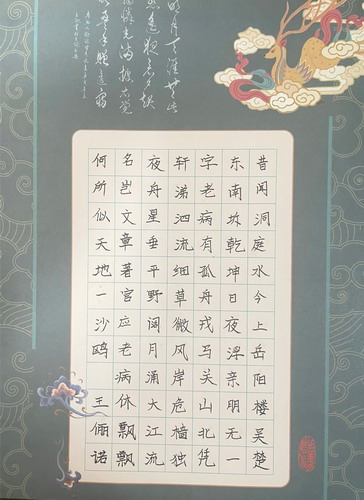 昔闻洞庭水今上岳阳楼吴楚
东南坼乾坤日夜浮亲朋无一
字老病有孤舟戎马关山北凭
轩涕泗流细草微风岸危樯独
夜舟星垂平野阔月涌大江流
名岂文章著官应老病休飘飘
何所似天地一沙鸥 王俪诺